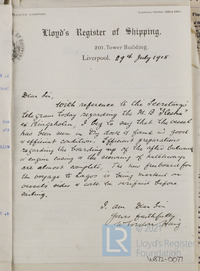 Lloyd's Register of Shipping,
201, Tower Building,
Liverpool, 29th July 1915
Dear Sir,
With reference to the Secretary's
telegram today regarding the
ex Ringsholm, I beg to say that the vessel
has been seen in dry dock & found in good
& efficient condition. Efficient preparations
regarding the boarding up of the after
& engine casing & the securing of
are almost complete. The new freeboard for
the voyage to Lagos is being marked on
vessels side & will be verified before
sailing.
I am Dear Sir
Yours faithfully
Lloyd's
Register
Foundation
W872-0077